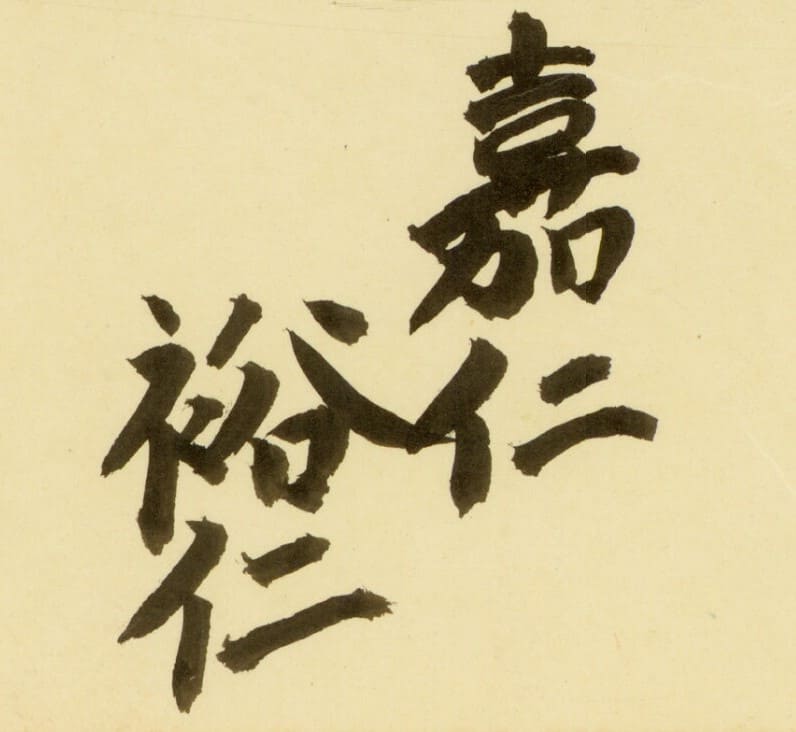 嘉仁
裕仁